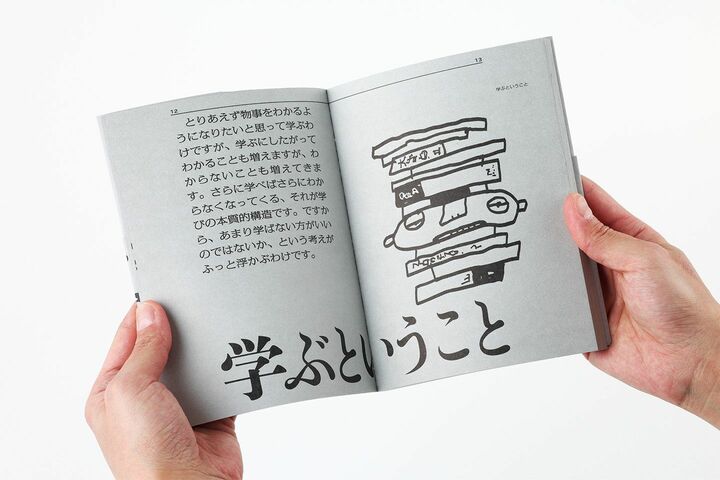 12
とりあえず物事をわかるよ
うになりたいと思って学ぶわ
けですが、学ぶにしたがって
わかることも増えますが、わ
からないことも増えてきま
す。さらに学べばさらにわか
らなくなってくる、それが学
びの本質的構造です。ですか
ら、あまり学ばない方がいい
のではないか、という考えが
ふっと浮かぶわけです。
13
学ぶということ
Q&A
学ぶということ